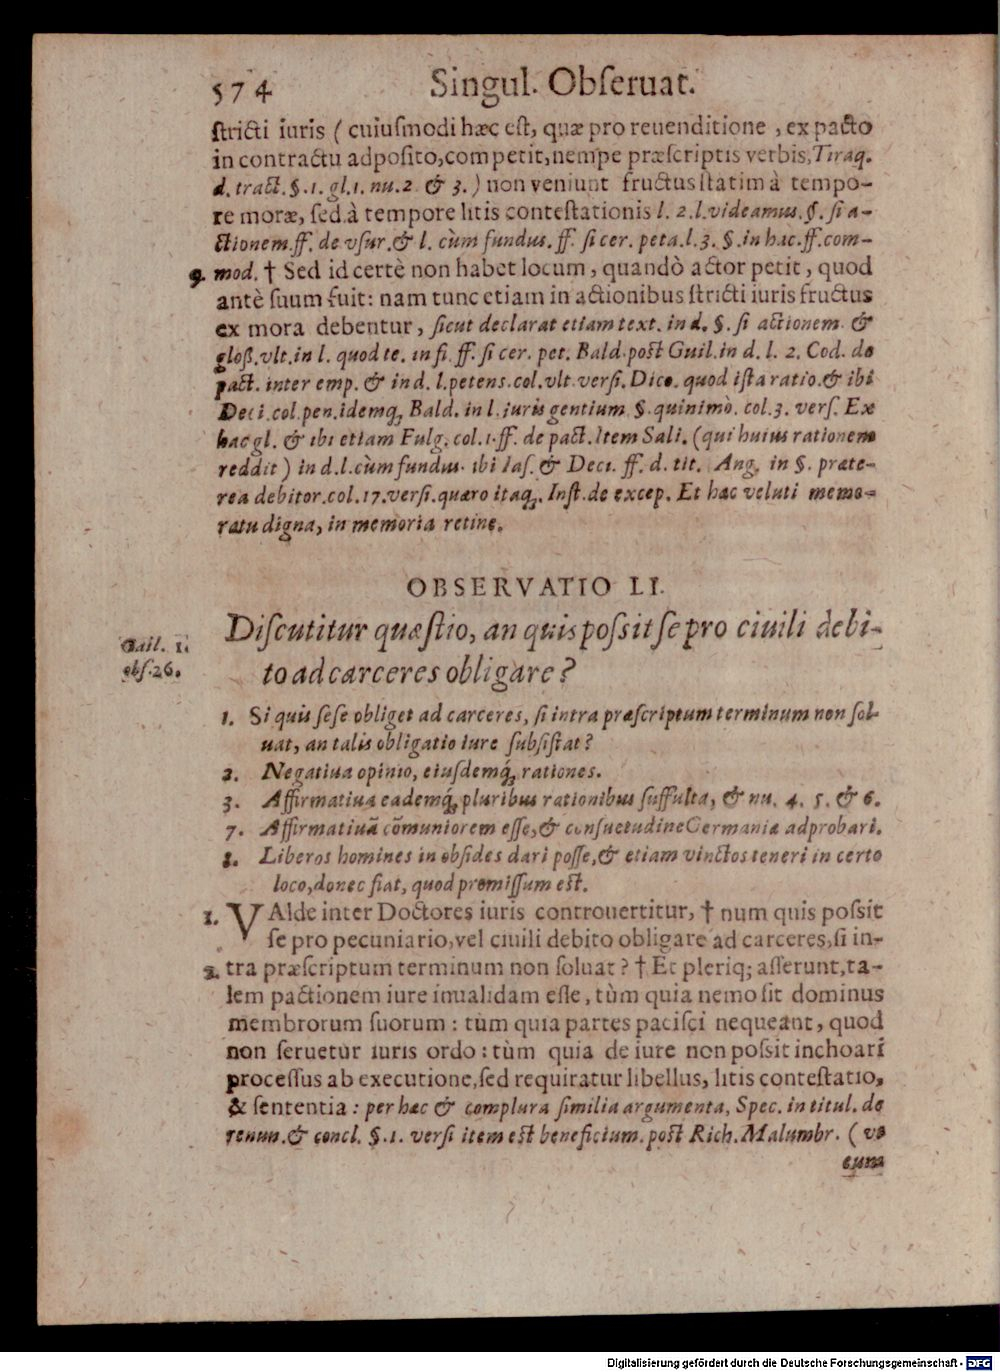 574 Singul. Obſeruat.
ſtricti iuris ( cuiuſmodi hæc eſt, quæ pro reuenditione , ex pacto
in contractu adpoſito,competit,nempe præſcriptis verbis,Tiraq.
d. tract. §. 1. gl. 1. nu. 2 & 3. ) non veniunt fructus ſtatim à tempo-
re moræ, ſed à tempore litis conteſtationis l. 2. l. videamus. §. ſi a-
ctionem. ff. de vſur. & l. cùm fundus. ff. ſi cer. peta. l. 3. §. in hac. ff. com-
9. mod. † Sed id certè non habet locum , quandò actor petit , quod
antè ſuum fuit: nam tunc etiam in actionibus ſtricti iuris fructus
ex mora debentur , ſicut declarat etiam text. in d. §. ſi actionem. &
gloß. vlt. in l. quod te. in fi. ff. ſi cer. pet. Bald. poſt Guil. in d. l. 2. Cod. de
pact. inter emp. & in d. l. petens. col. vlt. verſi. Dico. quod iſta ratio. & ibi
Deci. col. pen. idemq́; Bald. in l. iuris gentium. §. quinimò. col. 3. verſ. Ex
hac gl. & ibi etiam Fulg. col. 1. ff. de pact. Item Sali. (qui huius rationem
reddit ) in d. l. cùm fundus. ibi Iaſ. & Deci. ff. d. tit. Ang. in §. præte-
rea debitor. col. 17. verſi. quæro itaq́;. Inſt. de excep. Et hæc veluti memo-
ratu digna, in memoria retine.
OBSERVATIO LI.
Diſcutitur quæſtio, an quis poſsit ſe pro ciuili debi-
to ad carceres obligare?
Gail. 1.
obſ. 26.
1. Si quis ſeſe obliget ad carceres, ſi intra præſcriptum terminum non ſol-
uat, an talis obligatio iure ſubſiſtat?
2. Negatiua opinio, eiuſdemq́; rationes.
3. Affirmatiua eademq́; pluribus rationibus ſuffulta, & nu. 4. 5. & 6.
7. Affirmatiuā cōmuniorem eſſe, & conſuetudine Germaniæ adprobari.
8. Liberos homines in obſides dari poſſe, & etiam vinctos teneri in certo
loco, donec fiat, quod promiſſum eſt.
1. VAlde inter Doctores iuris controuertitur, † num quis poſsit
ſe pro pecuniario, vel ciuili debito obligare ad carceres, ſi in-
2. tra præſcriptum terminum non ſoluat ? † Et pleriq; aſſerunt, ta-
lem pactionem iure inualidam eſſe, tùm quia nemo ſit dominus
membrorum ſuorum : tùm quia partes paciſci nequeant, quod
non ſeruetur iuris ordo : tùm quia de iure non poſsit inchoari
proceſſus ab executione, ſed requiratur libellus, litis conteſtatio,
& ſententia : per hæc & complura ſimilia argumenta, Spec. in titul. de
renun. & concl. §. 1. verſi item eſt beneficium. poſt Rich. Malumbr. ( vt
eum
Digitalisierung gefördert durch die Deutsche Forschungsgemeinschaft - DFG